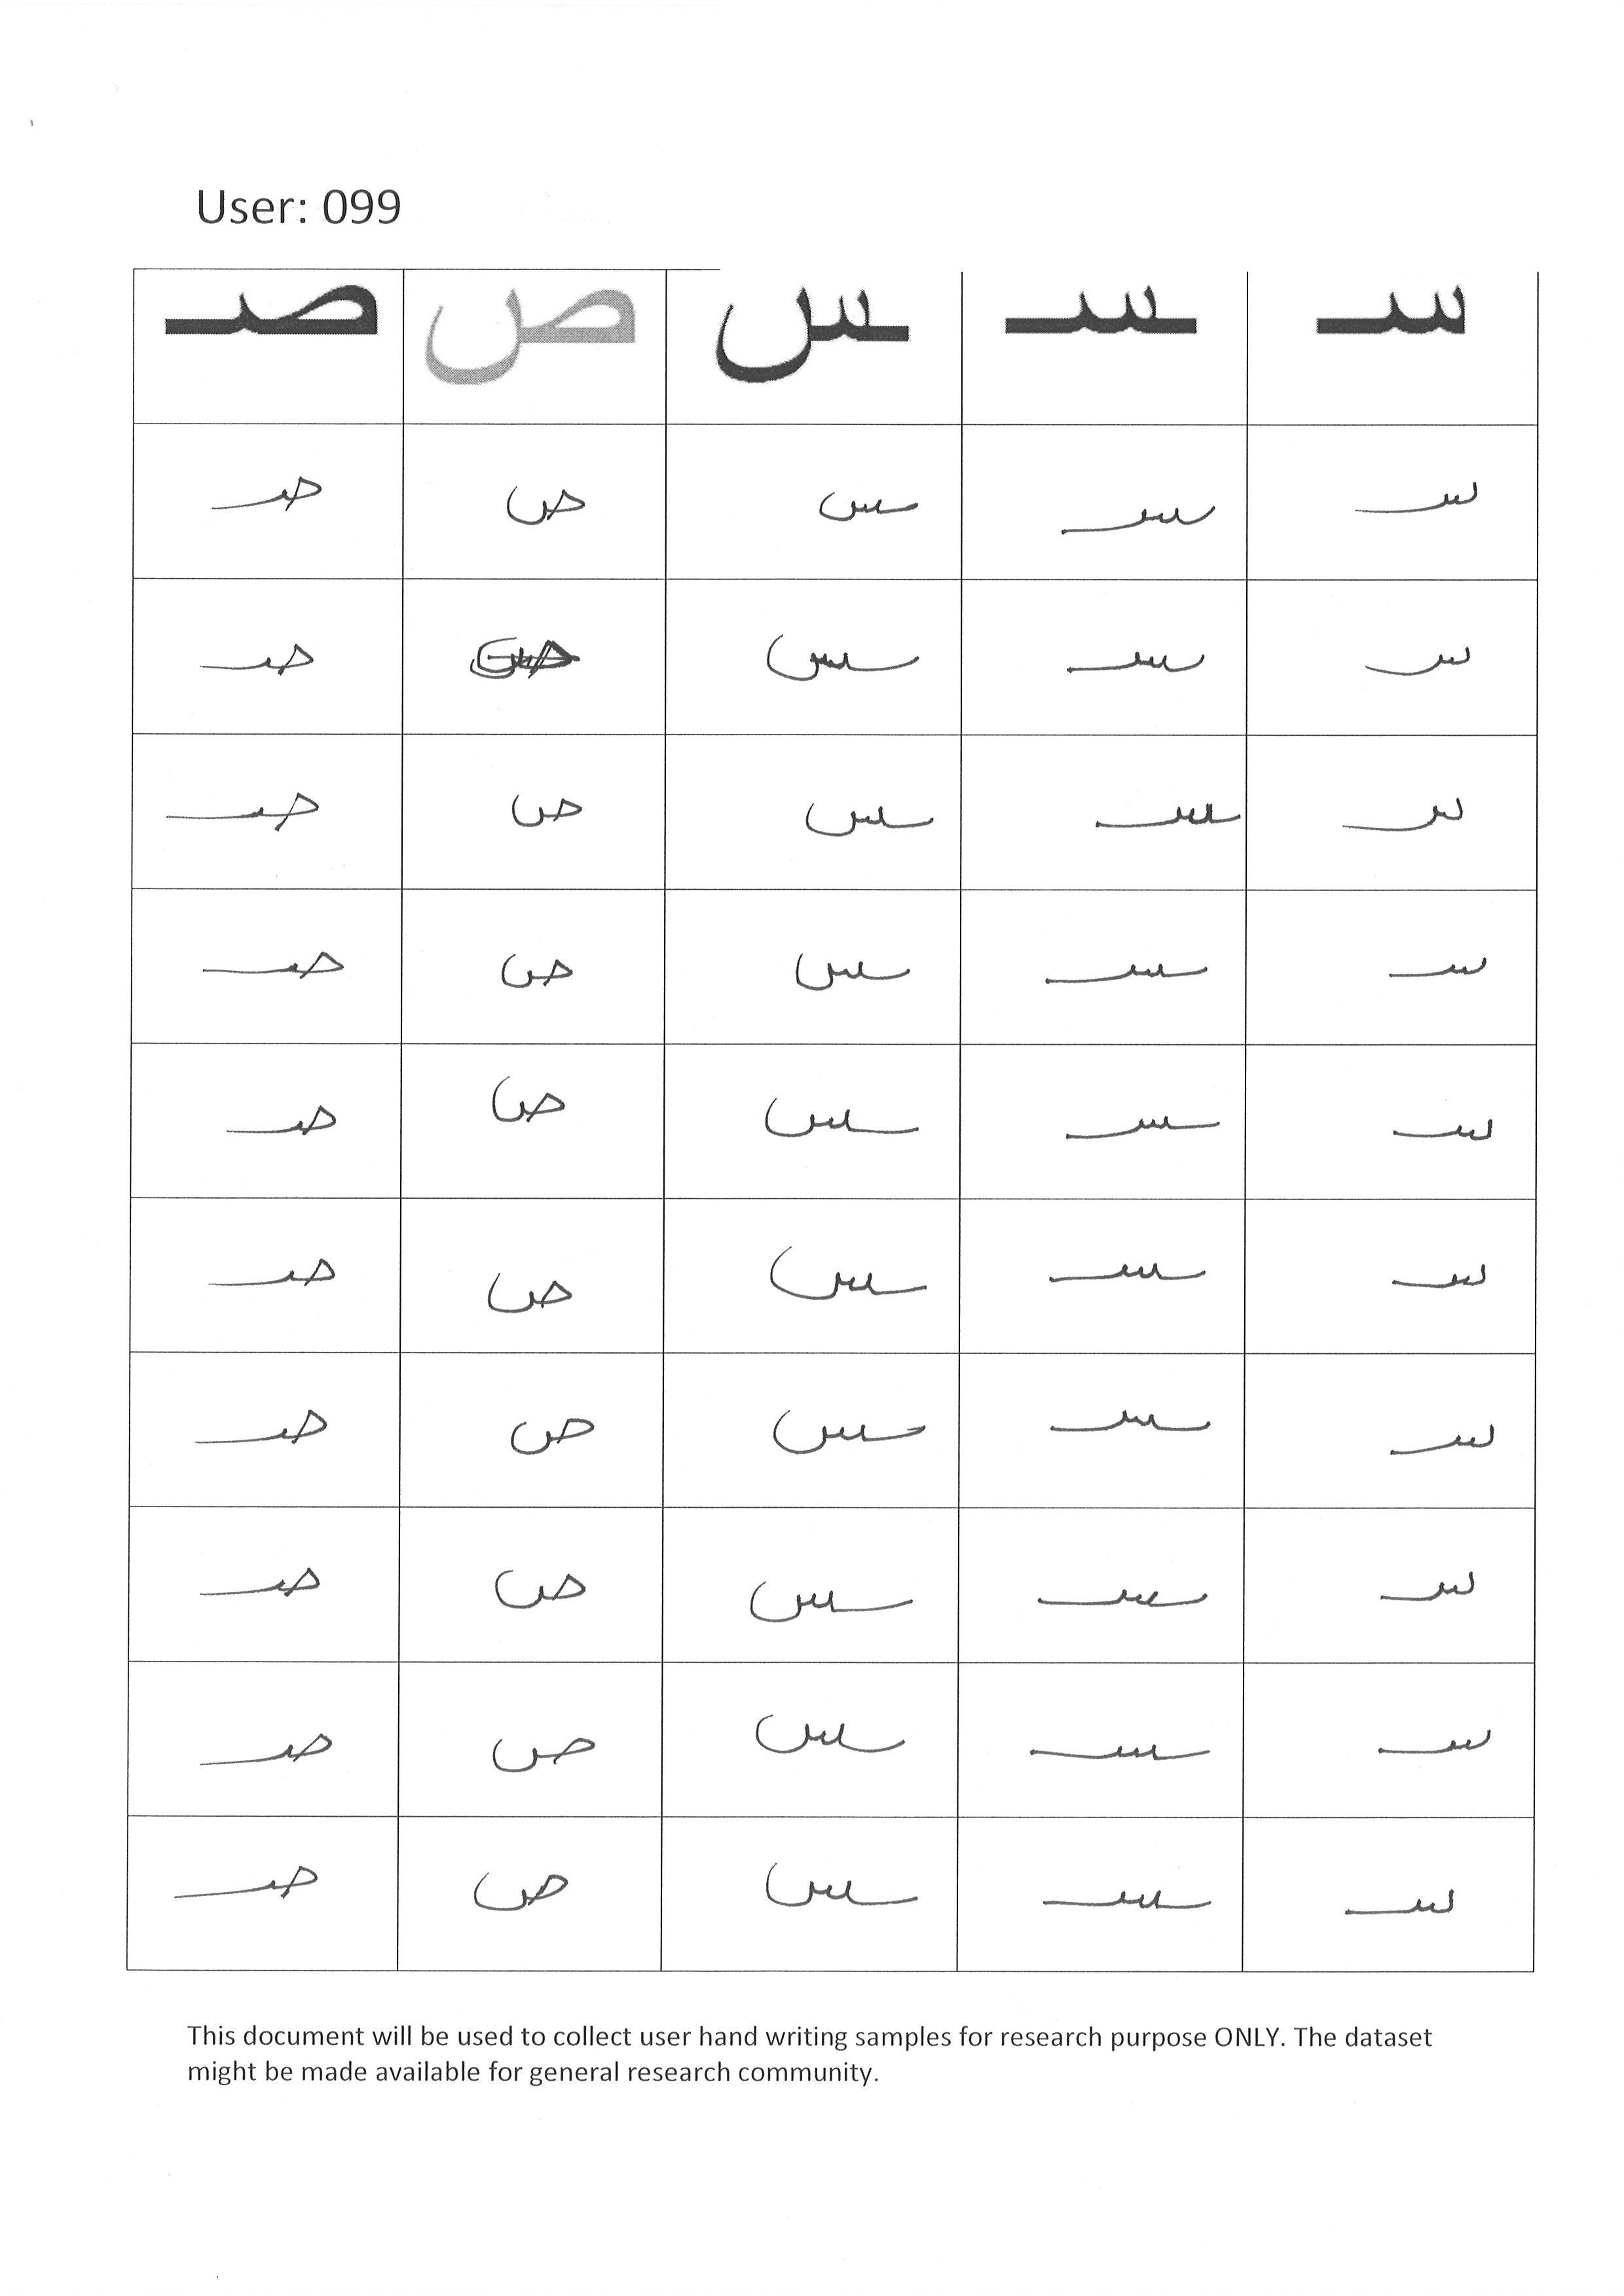 User: 099
سـ ـسـ ـس ص صـ
سـ ـسـ ـس ص صـ
سـ ـسـ ـس صـ
سـ ـسـ ـس ص صـ
سـ ـسـ ـس ص صـ
سـ ـسـ ـس ص صـ
سـ ـسـ ـس ص صـ
سـ ـسـ ـس ص صـ
سـ ـسـ ـس ص صـ
سـ ـسـ ـس ص صـ
سـ ـسـ ـس ص صـ
This document will be used to collect user hand writing samples for research purpose ONLY. The dataset
might be made available for general research community.